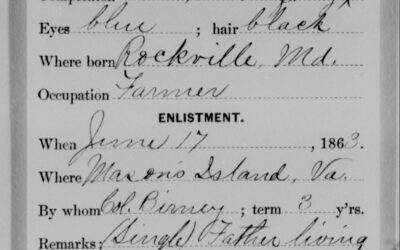 Eyes blue ; hair black
Where born Rockville, Md.
Occupation Farmer
ENLISTMENT.
When June 17 , 1863.
Where Mason's Island, Va.
By whom Col. Birney ; term 3 y'rs.
Remarks: (Single) Father living